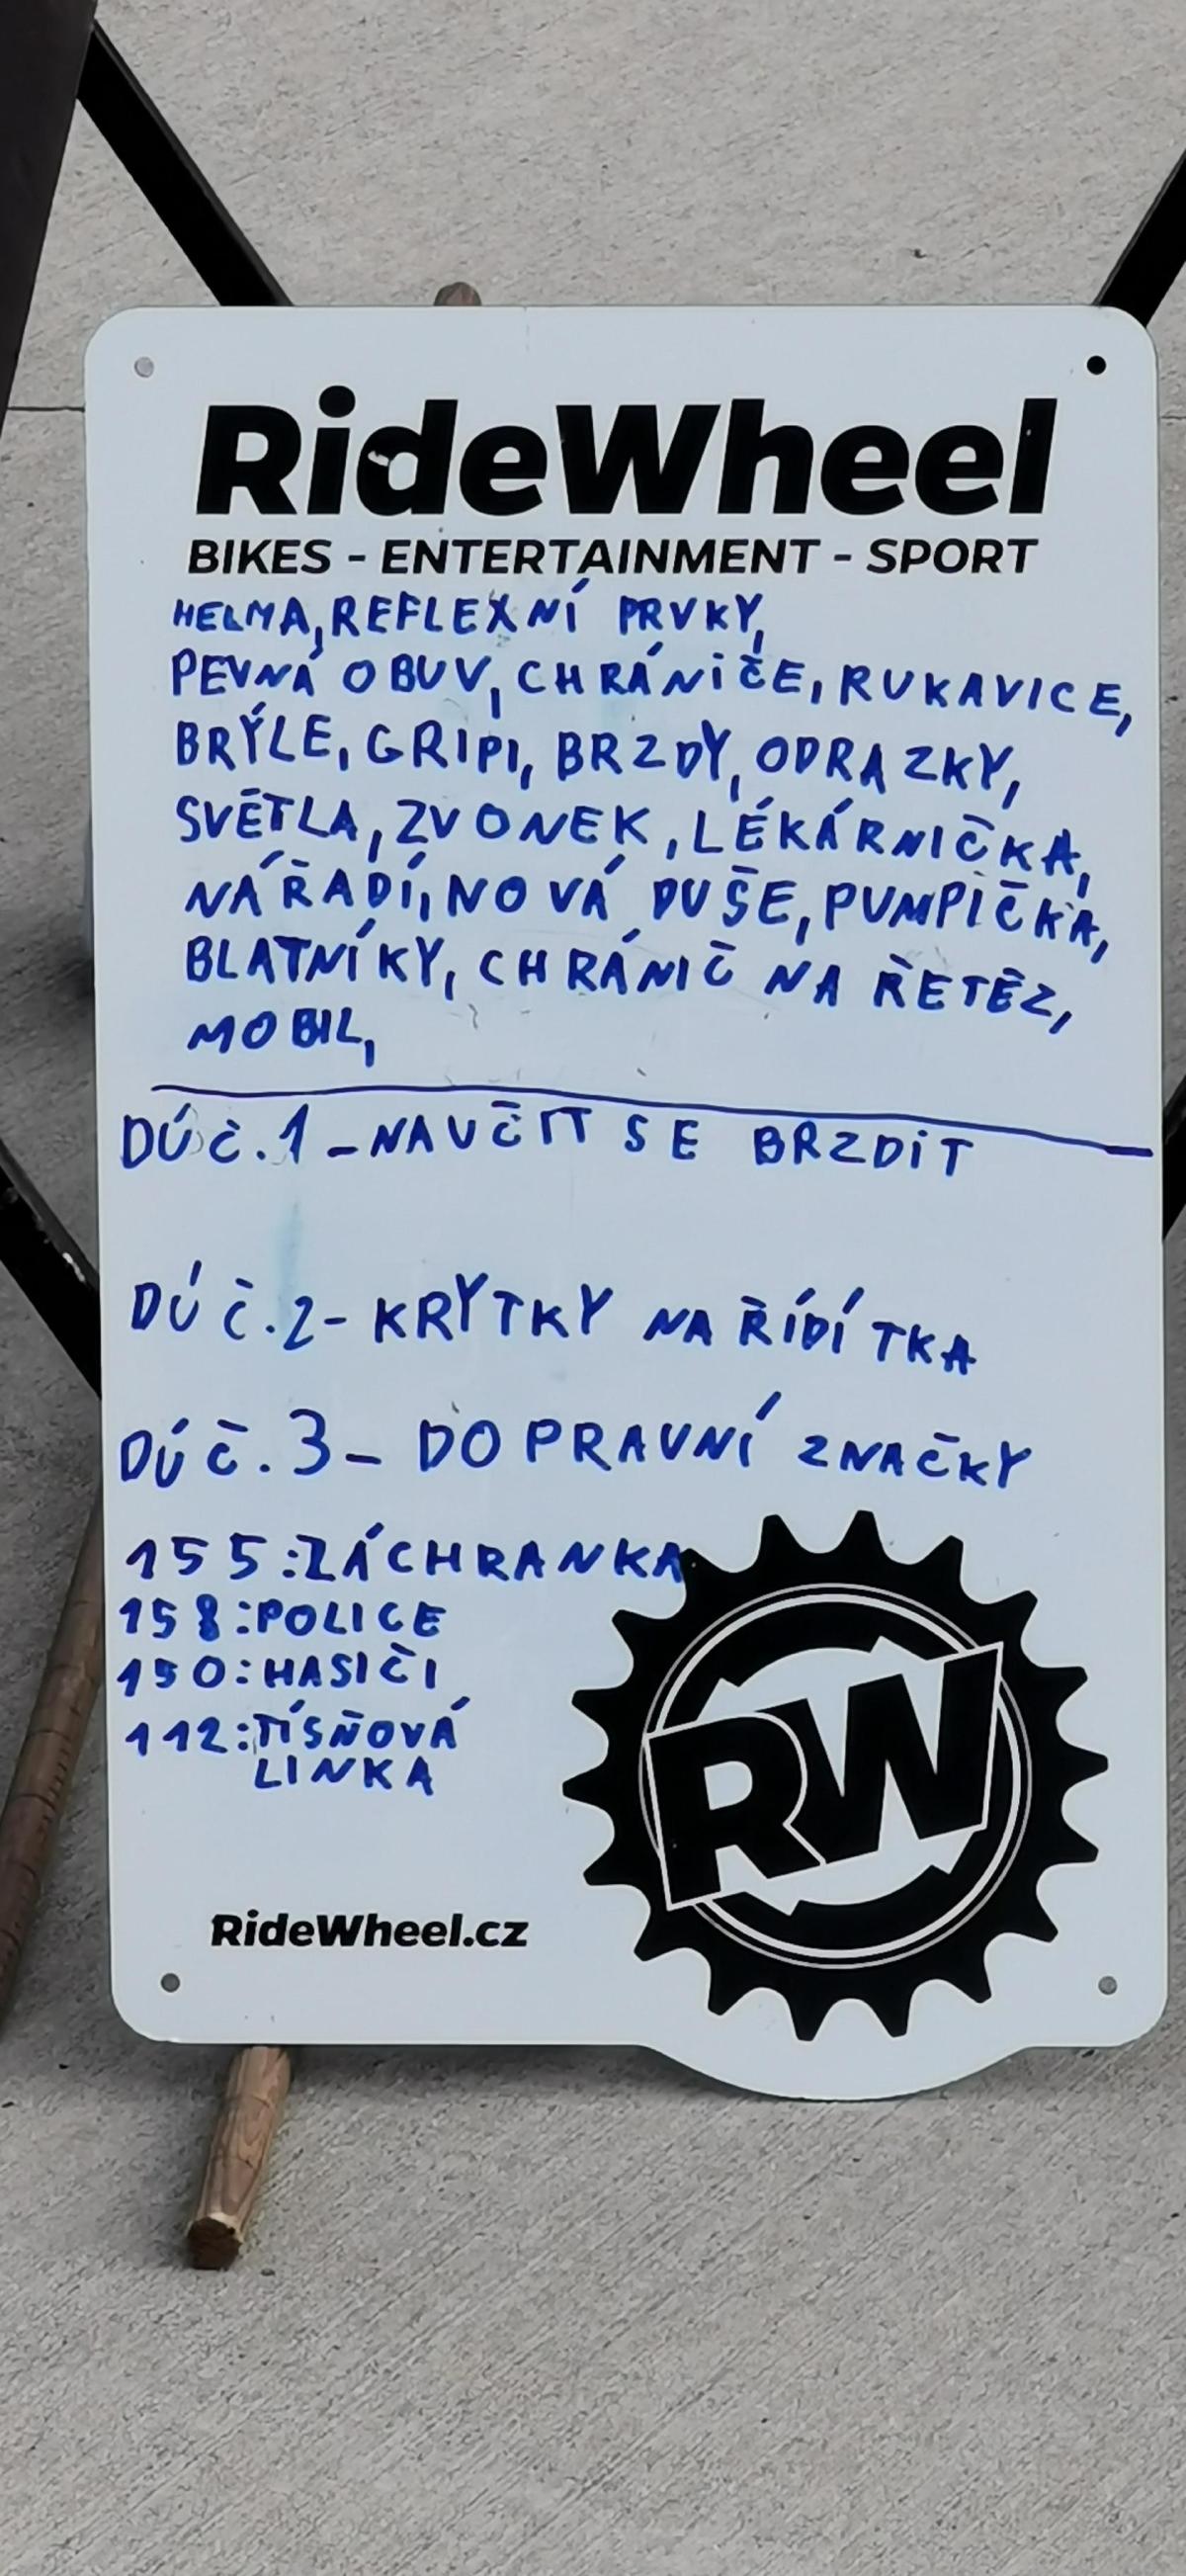 RideWheel
BIKES - ENTERTAINMENT - SPORT
HELMA, REFLEXNÍ PRVKY,
PEVNÁ OBUV, CHRÁNIČE, RUKAVICE,
BRÝLE, GRIPI, BRZDY, ODRAZKY,
SVĚTLA, ZVONEK, LÉKÁRNIČKA,
NÁŘADÍ, NOVÁ DUŠE, PUMPIČKA,
BLATNÍKY, CHRÁNIČ NA ŘETĚZ,
MOBIL,
DÚ č.1 - NAUČIT SE BRZDIT
DÚ č.2 - KRYTKY NA ŘÍDÍTKA
DÚ č.3 - DOPRAVNÍ ZNAČKY
155:ZÁCHRANKA
158:POLICE
150:HASIČI
112:TÍSŇOVÁ
LINKA
RW
RideWheel.cz